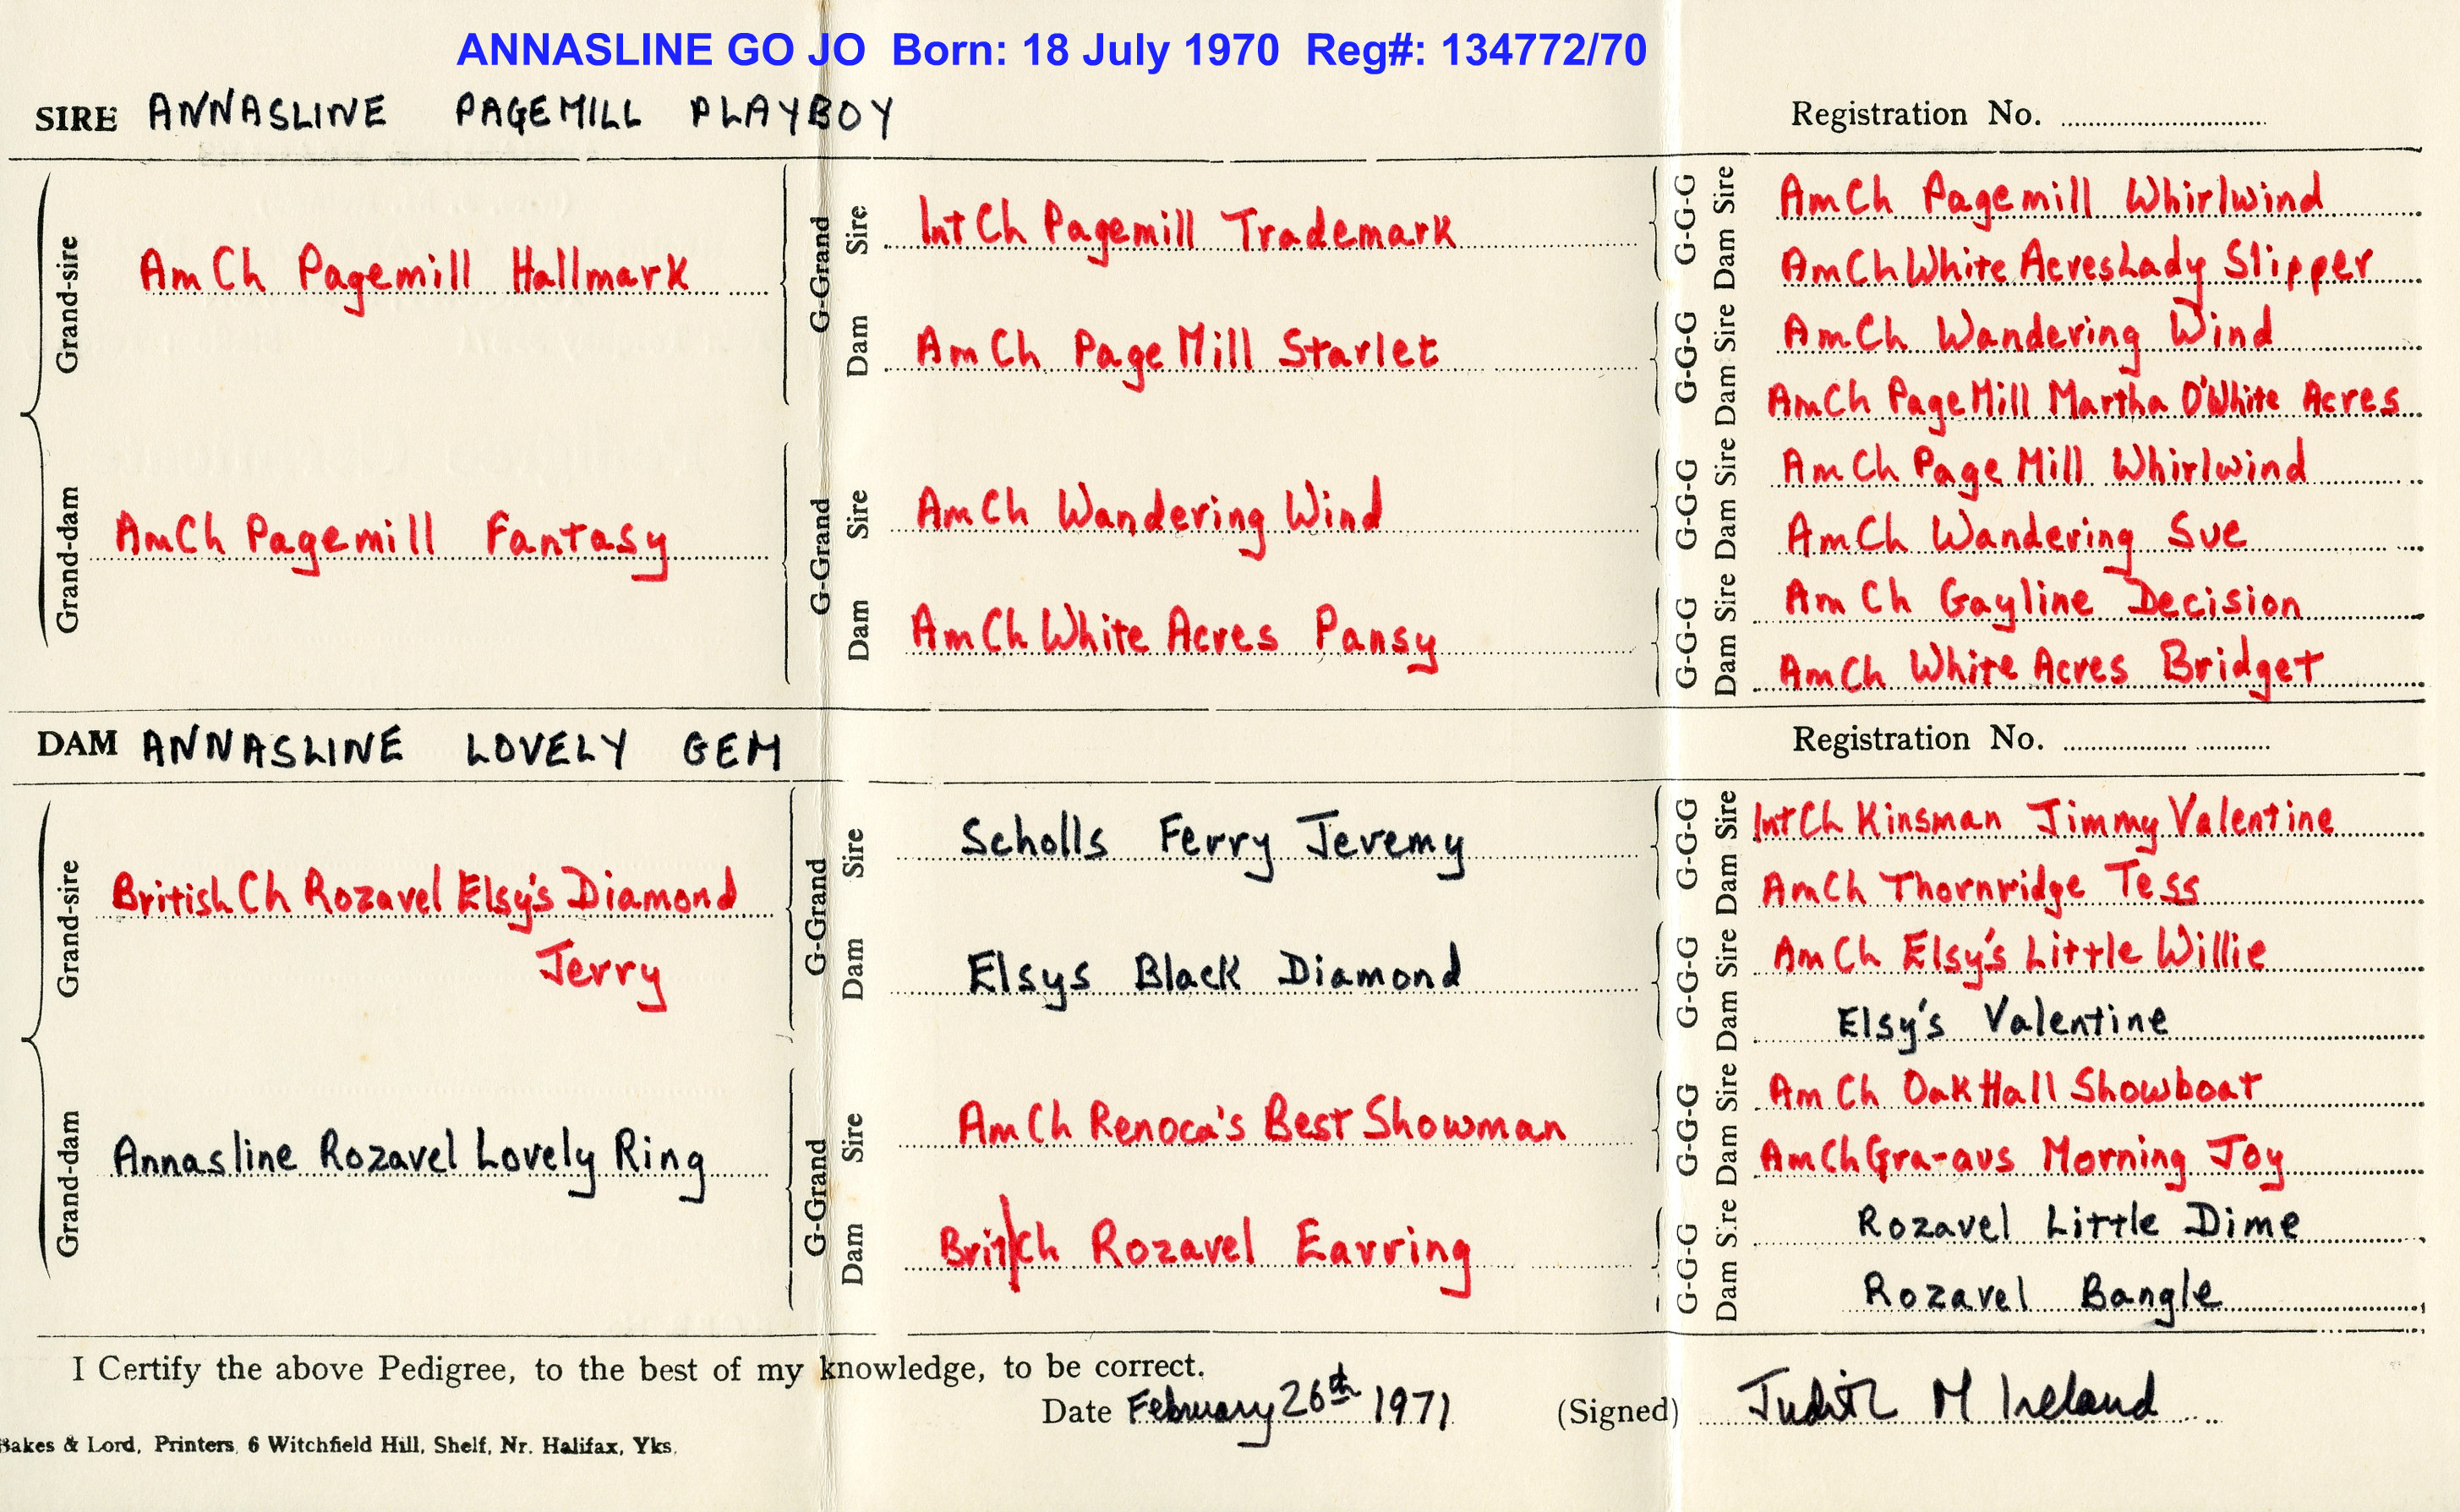 ANNASLINE GO JO Born: 18 July 1970 Reg#: 134772/70
SIRE ANNASLINE PAGEMILL PLAYBOY
Registration No.
Grand-sire
Am Ch Pagemill Hallmark
G-Grand
Sire
Int Ch Pagemill Trademark
Dam
Am Ch Page Mill Starlet
G-G-G
Sire
Am Ch Pagemill Whirlwind
Dam
Am Ch White Acres Lady Slipper
G-G-G
Sire
Am Ch Wandering Wind
Dam
Am Ch Page Mill Martha O'White Acres
Grand-dam
Am Ch Pagemill Fantasy
G-Grand
Sire
Am Ch Wandering Wind
Dam
Am Ch White Acres Pansy
G-G-G
Sire
Am Ch Page Mill Whirlwind
Dam
Am Ch Wandering Sue
G-G-G
Sire
Am Ch Gayline Decision
Dam
Am Ch White Acres Bridget
DAM ANNASLINE LOVELY GEM
Registration No.
Grand-sire
British Ch Rozavel Elsy's Diamond
Jerry
G-Grand
Sire
Scholls Ferry Jeremy
Dam
Elsys Black Diamond
G-G-G
Sire
Int Ch Kinsman Jimmy Valentine
Dam
Am Ch Thornridge Tess
G-G-G
Sire
Am Ch Elsy's Little Willie
Dam
Elsy's Valentine
Grand-dam
Annasline Rozavel Lovely Ring
G-Grand
Sire
Am Ch Renoca's Best Showman
Dam
Brit Ch Rozavel Earring
G-G-G
Sire
Am Ch Oak Hall Showboat
Dam
Am Ch Gra-aus Morning Joy
G-G-G
Sire
Rozavel Little Dime
Dam
Rozavel Bangle
I Certify the above Pedigree, to the best of my knowledge, to be correct.
Date February 26th 1971 (Signed) Judith M Ireland
Bakes & Lord, Printers, 6 Witchfield Hill, Shelf, Nr. Halifax, Yks.